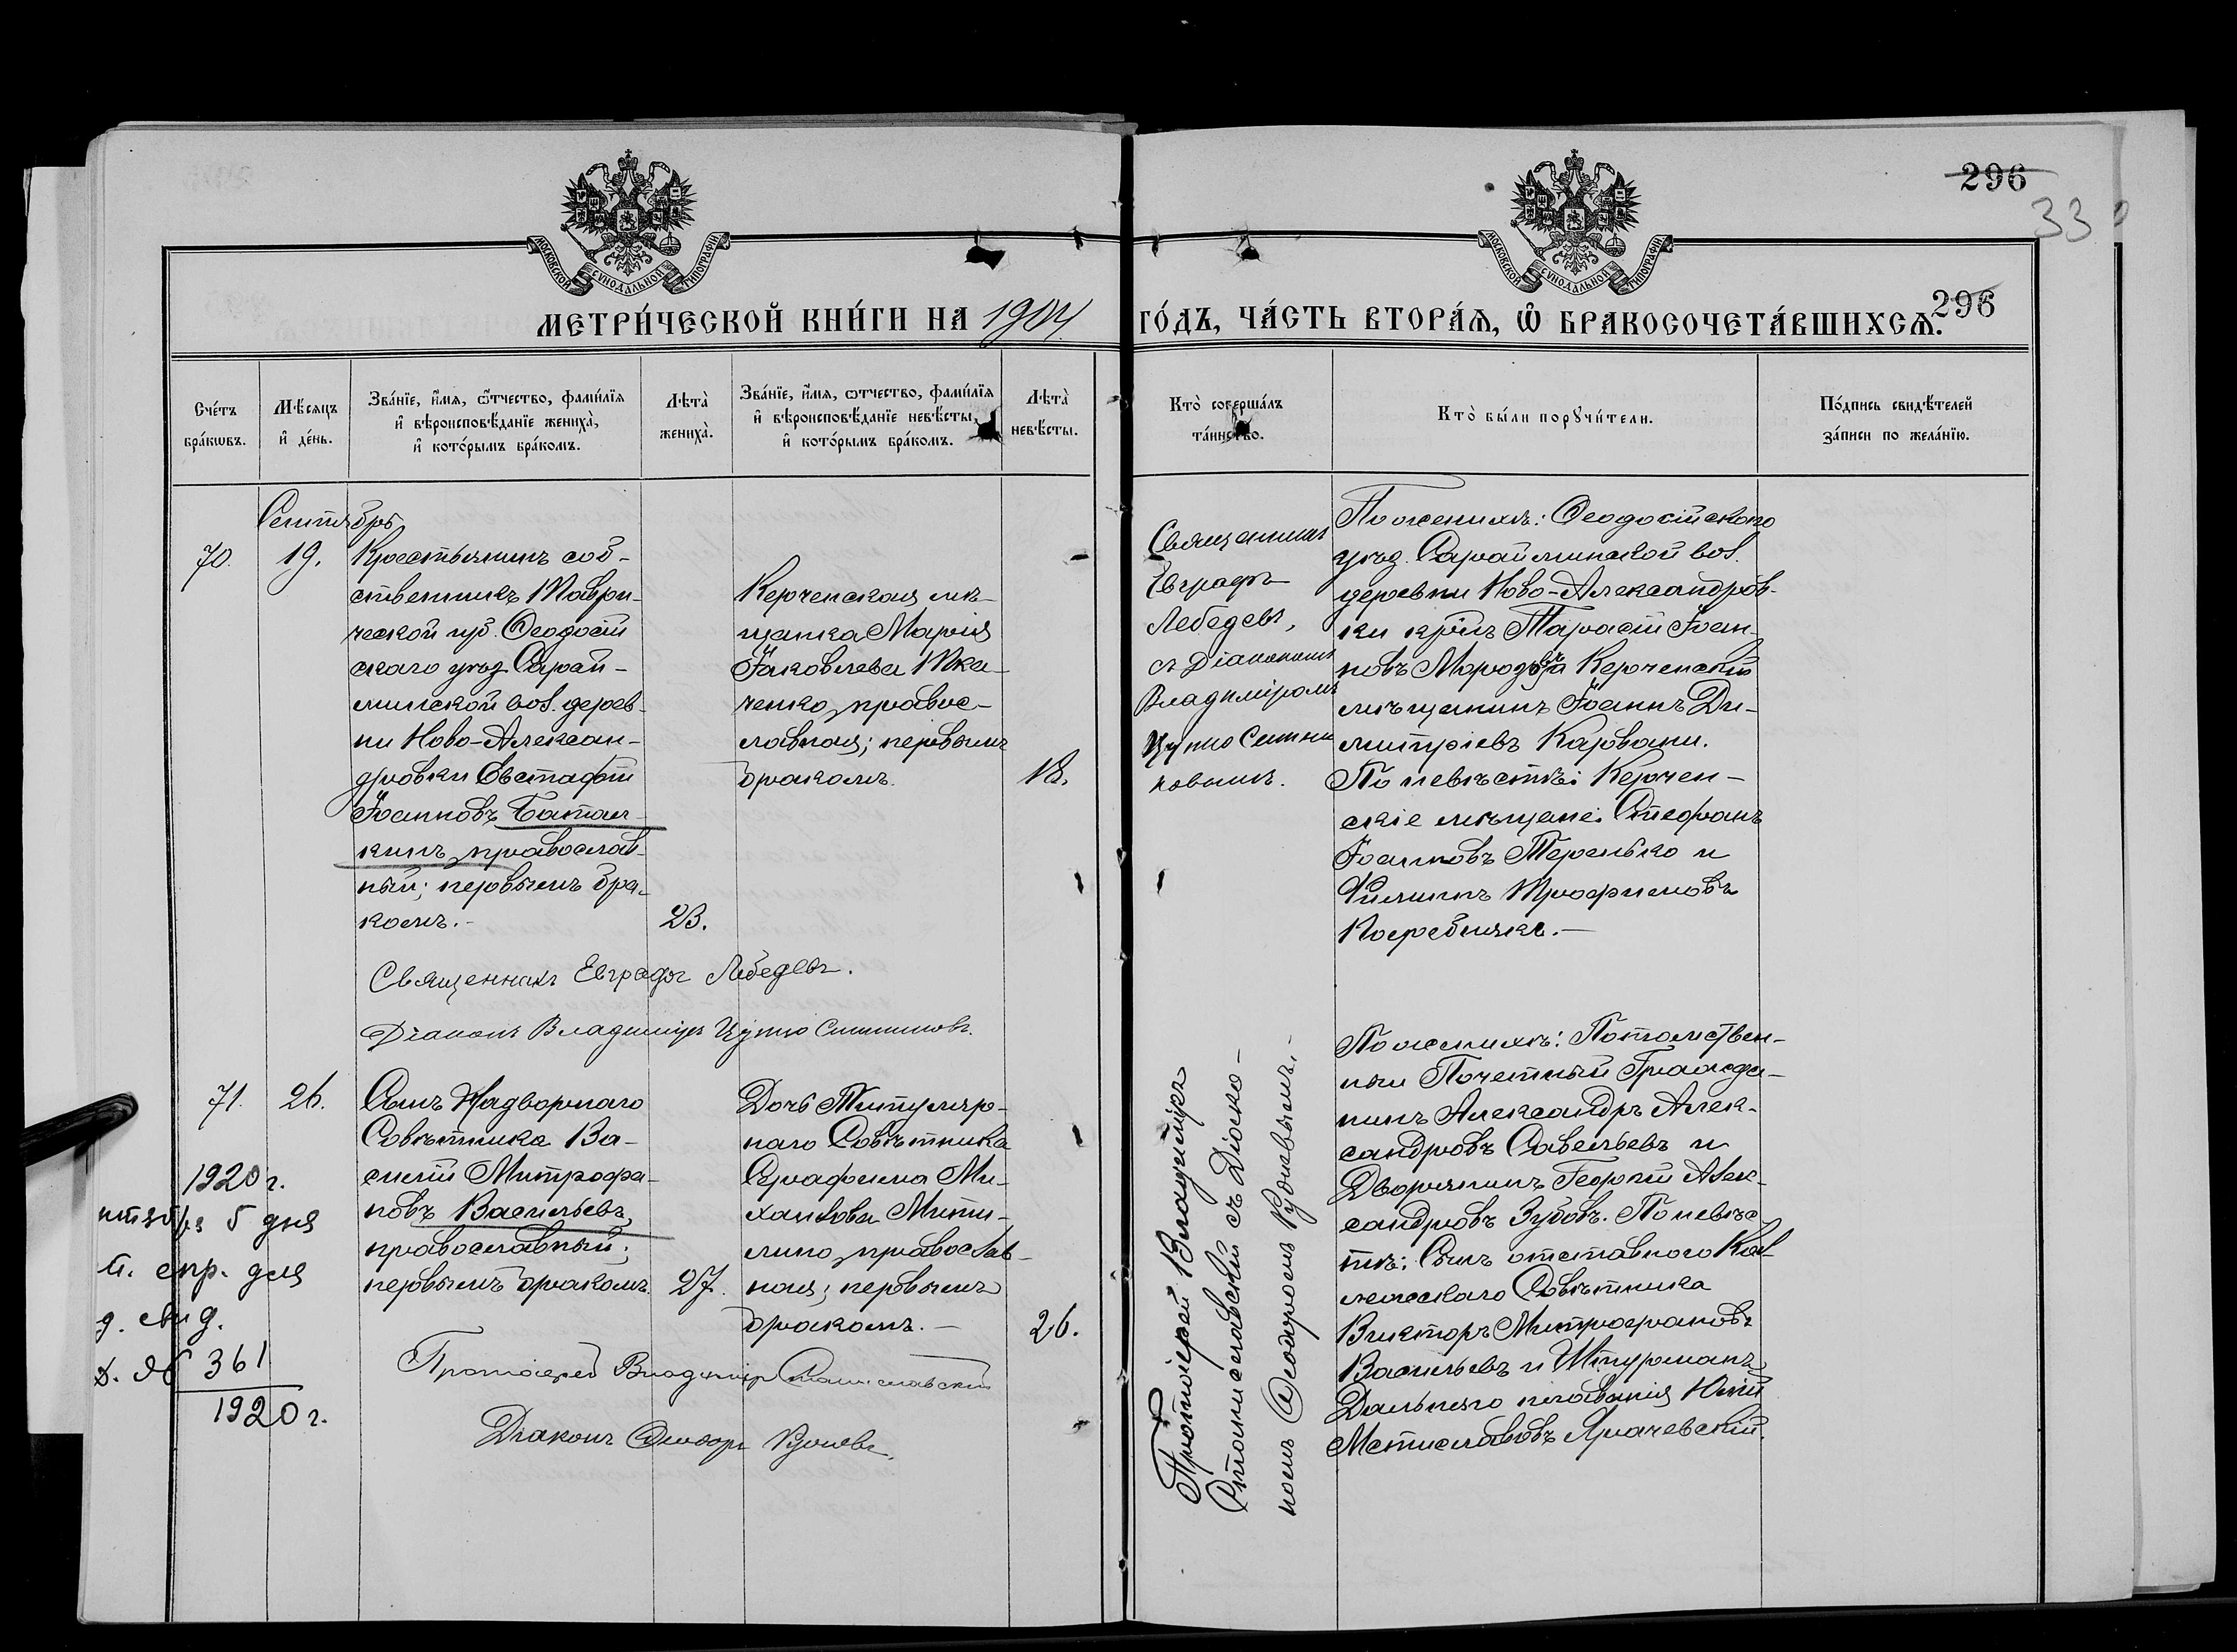 296
33
МОСКОВСКОЙ СѴНОДАЛЬНОЙ ТИПОГРАФІИ
МОСКОВСКОЙ СѴНОДАЛЬНОЙ ТИПОГРАФІИ
МЕТРИ́ЧЕСКОЙ КНИ́ГИ НА 1904
ГО́ДЪ, ЧА́СТЬ ВТОРА́Я, Ѡ҆ БРАКОСОЧЕТА́ВШИХСѦ.
296
Сче́тъ бра́кѡвъ.
Мѣ́сяцъ и҆ де́нь.
Зва́нїе, и҆́мя, ѻ҆́тчество, фами́лїя
и҆ вѣроисповѣ́данїе жениха̀,
и҆ кото́рымъ бра́комъ.
Лѣта̀ жениха̀.
Зва́нїе, и҆́мя, ѻтчество, фами́лїя
и҆ вѣроисповѣ́данїе невѣ́сты,
и҆ кото́рымъ бра́комъ.
Лѣта̀ невѣ́сты.
Кто̀ соверша́лъ та́инство.
Кто̀ бы́ли порꙋчи́тели.
По́дпись свидѣ́телей
за́писи по жела́нїю.
Сентябрь
70.
19.
Крестьянинъ соб-
ственникъ Таври-
ческой губ. Ѳеодосій
скаго уѣзд. Сарай-
минской вол. дерев-
ни Ново-Алексан-
дровки Евстафій
Іоанновъ Батал-
кинъ, православ-
ный; первымъ бра-
комъ.-
23.
Керченская мѣ-
щанка Марія
Іаковлева Тка-
ченко, правос-
лавная; первымъ
бракомъ.
18.
Священникъ
Евграфъ
Лебедевъ,
съ Діакономъ
Владиміромъ
Цупко Ситни
ковымъ.
По женихѣ: Ѳеодосійскаго
уѣзд. Сарайминской вол.
деревни Ново-Александров-
ки кр̃нъ Тарасій Іоан-
новъ Керченскій
мѣщанинъ Іоаннъ Ди-
митріевъ Карвани.
По невѣстѣ: Керчен-
скіе мѣщане: Стефанъ
Іоанновъ Теренько и
Филиппъ Трофимовъ
Священникъ Евграфъ Лебедевъ.
Діаконъ Владиміръ Цупко Ситниковъ.
71.
26.
Сынъ Надворнаго
Совѣтника Ва-
силій Митрофа-
новъ Васильевъ,
православный;
первымъ бракомъ.
27.
Дочь Титуляр-
наго Совѣтника
Серафима Ми-
хаилова Мити-
лино, православ-
ная; первымъ
бракомъ.-
26.
Протоіерей Владиміръ
Станиславскій съ Діако-
номъ Ѳеодоромъ
По женихѣ: Потомствен-
ный Почетный Гражда-
нинъ Александръ Алек-
сандровъ Савельевъ и
Дворянинъ Георгій Алек-
сандровъ Зубовъ. По невѣс-
тѣ: Сынъ отставного Кол-
лежскаго Совѣтника
Викторъ Митрофановъ
Васильевъ и Штурманъ
Дальняго плаванія Юлій
Мстиславовъ Ярачевскій.
Протоіерей Владиміръ Станиславскій
Діаконъ Ѳеодоръ
1920 г.
5 дня
спр. для
361
1920 г.